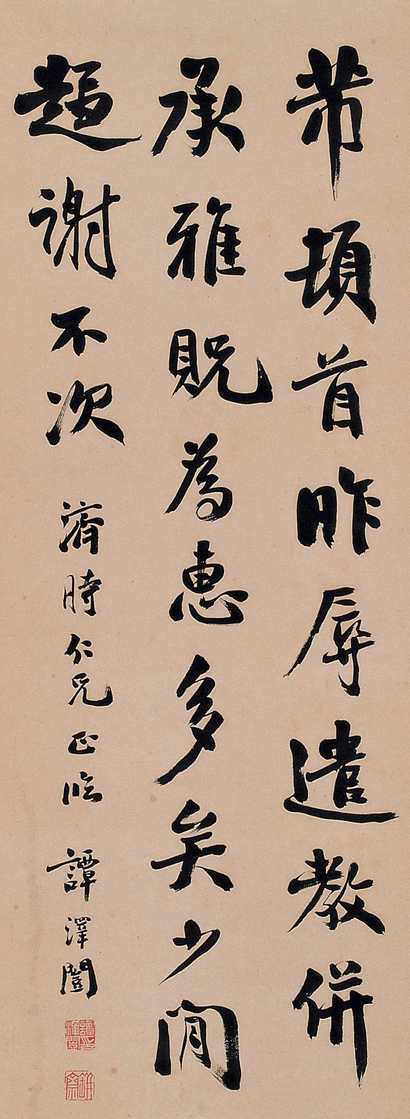 芾頓首昨辱遣教併
承雅貺為惠多矣少間
趨謝不次 濟時仁兄正臨 譚澤闓